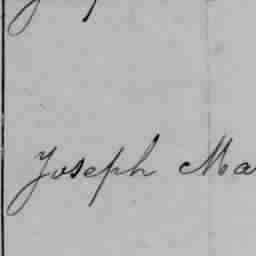 Joseph Ma